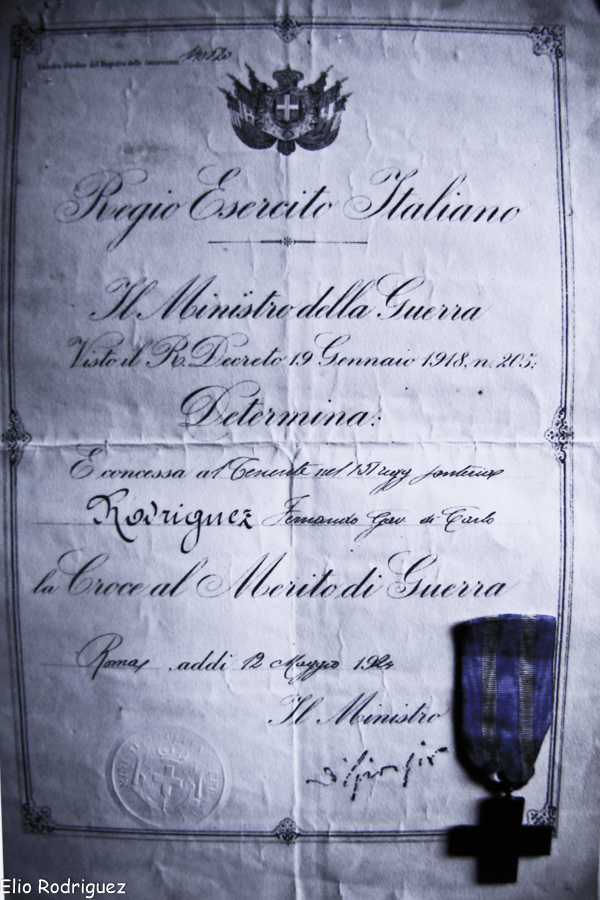 Numero d'ordine del Registro delle concessioni
Regio Esercito Italiano
Il Ministro della Guerra
Visto il R. Decreto 19 Gennaio 1918, n. 205;
Determina:
È concessa al Tenente nel
Rodriguez Fernando Cav. di Carlo
la Croce al Merito di Guerra
Roma, addì 12 Maggio 1924
Il Ministro
Elio Rodriguez